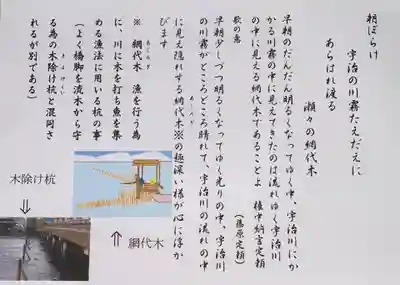 朝ぼらけ
宇治の川霧たえだえに
あらはれ渡る
瀬々の網代木
早朝のだんだん明るくなってゆく中、宇治川にか
かる川霧の中に見えてきたのは流れゆく宇治川
の中に見える網代木であることよ 権中納言定頼
(藤原定頼)
歌の意
早朝少しづつ明るくなってゆく光りの中、宇治川
の川霧がところどころ晴れて、宇治川の流れの中
に見え隠れする網代木※の趣深い様が心に浮か
びます
※ 網代木 漁を行う為
に、川に木を打ち魚を集
める漁法に用いる杭の事
(よく橋脚を流木から守
る為の木除け杭と混同さ
れるが別である)
あじろぎ
あじろぎ
きよけくい
木除け杭
⇓
⇑
網代木